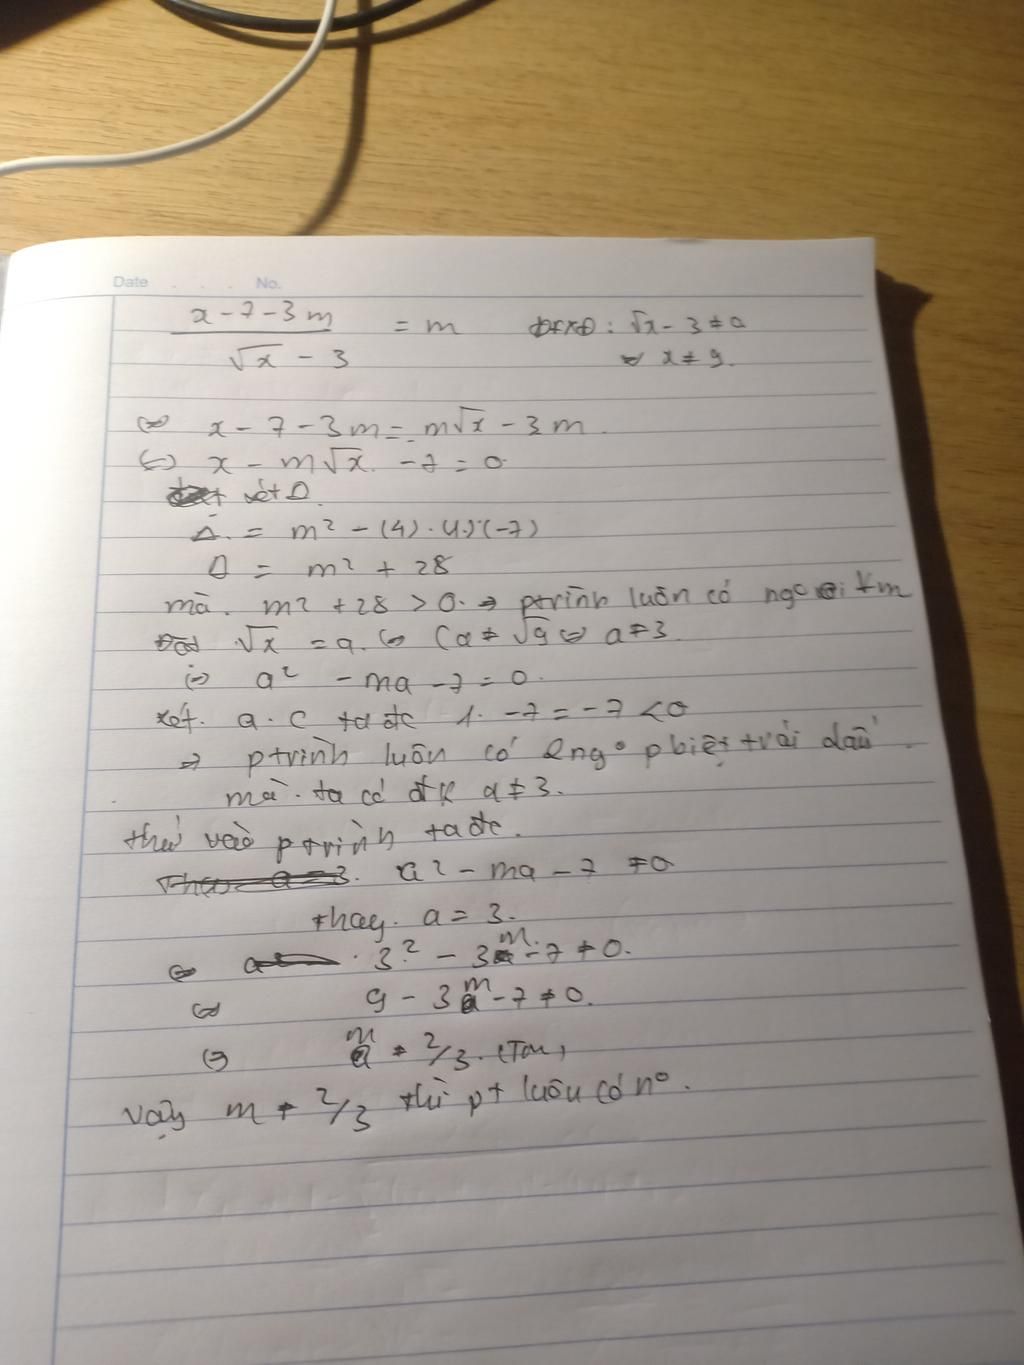 Date . . . No.
x - 7 - 3m / √x - 3 = m ĐKXĐ: √x - 3 ≠ 0
⇔ x ≠ 9.
⇔ x - 7 - 3m = m√x - 3m.
⇔ x - m√x - 7 = 0
xét Δ.
Δ = m² - (4).(1).(-7)
Δ = m² + 28
mà. m² + 28 > 0. ⇒ ptrình luôn có ngo với ∀m
Đặt √x = a. ⇔ (a ≠ √9 ⇔ a ≠ 3
⇔ a² - ma - 7 = 0.
xét. a.c ta đc 1. -7 = -7 < 0
⇒ ptrình luôn có 2 ngo pbiệt trái dấu.
mà. ta có đk a ≠ 3.
thử vào ptrình ta đc.
a² - ma - 7 ≠ 0
thay. a = 3.
⇔ 3² - 3m - 7 ≠ 0.
⇔ 9 - 3m - 7 ≠ 0.
⇔ m ≠ 2/3. (TM)
Vậy m ≠ 2/3 thì pt luôn có no.